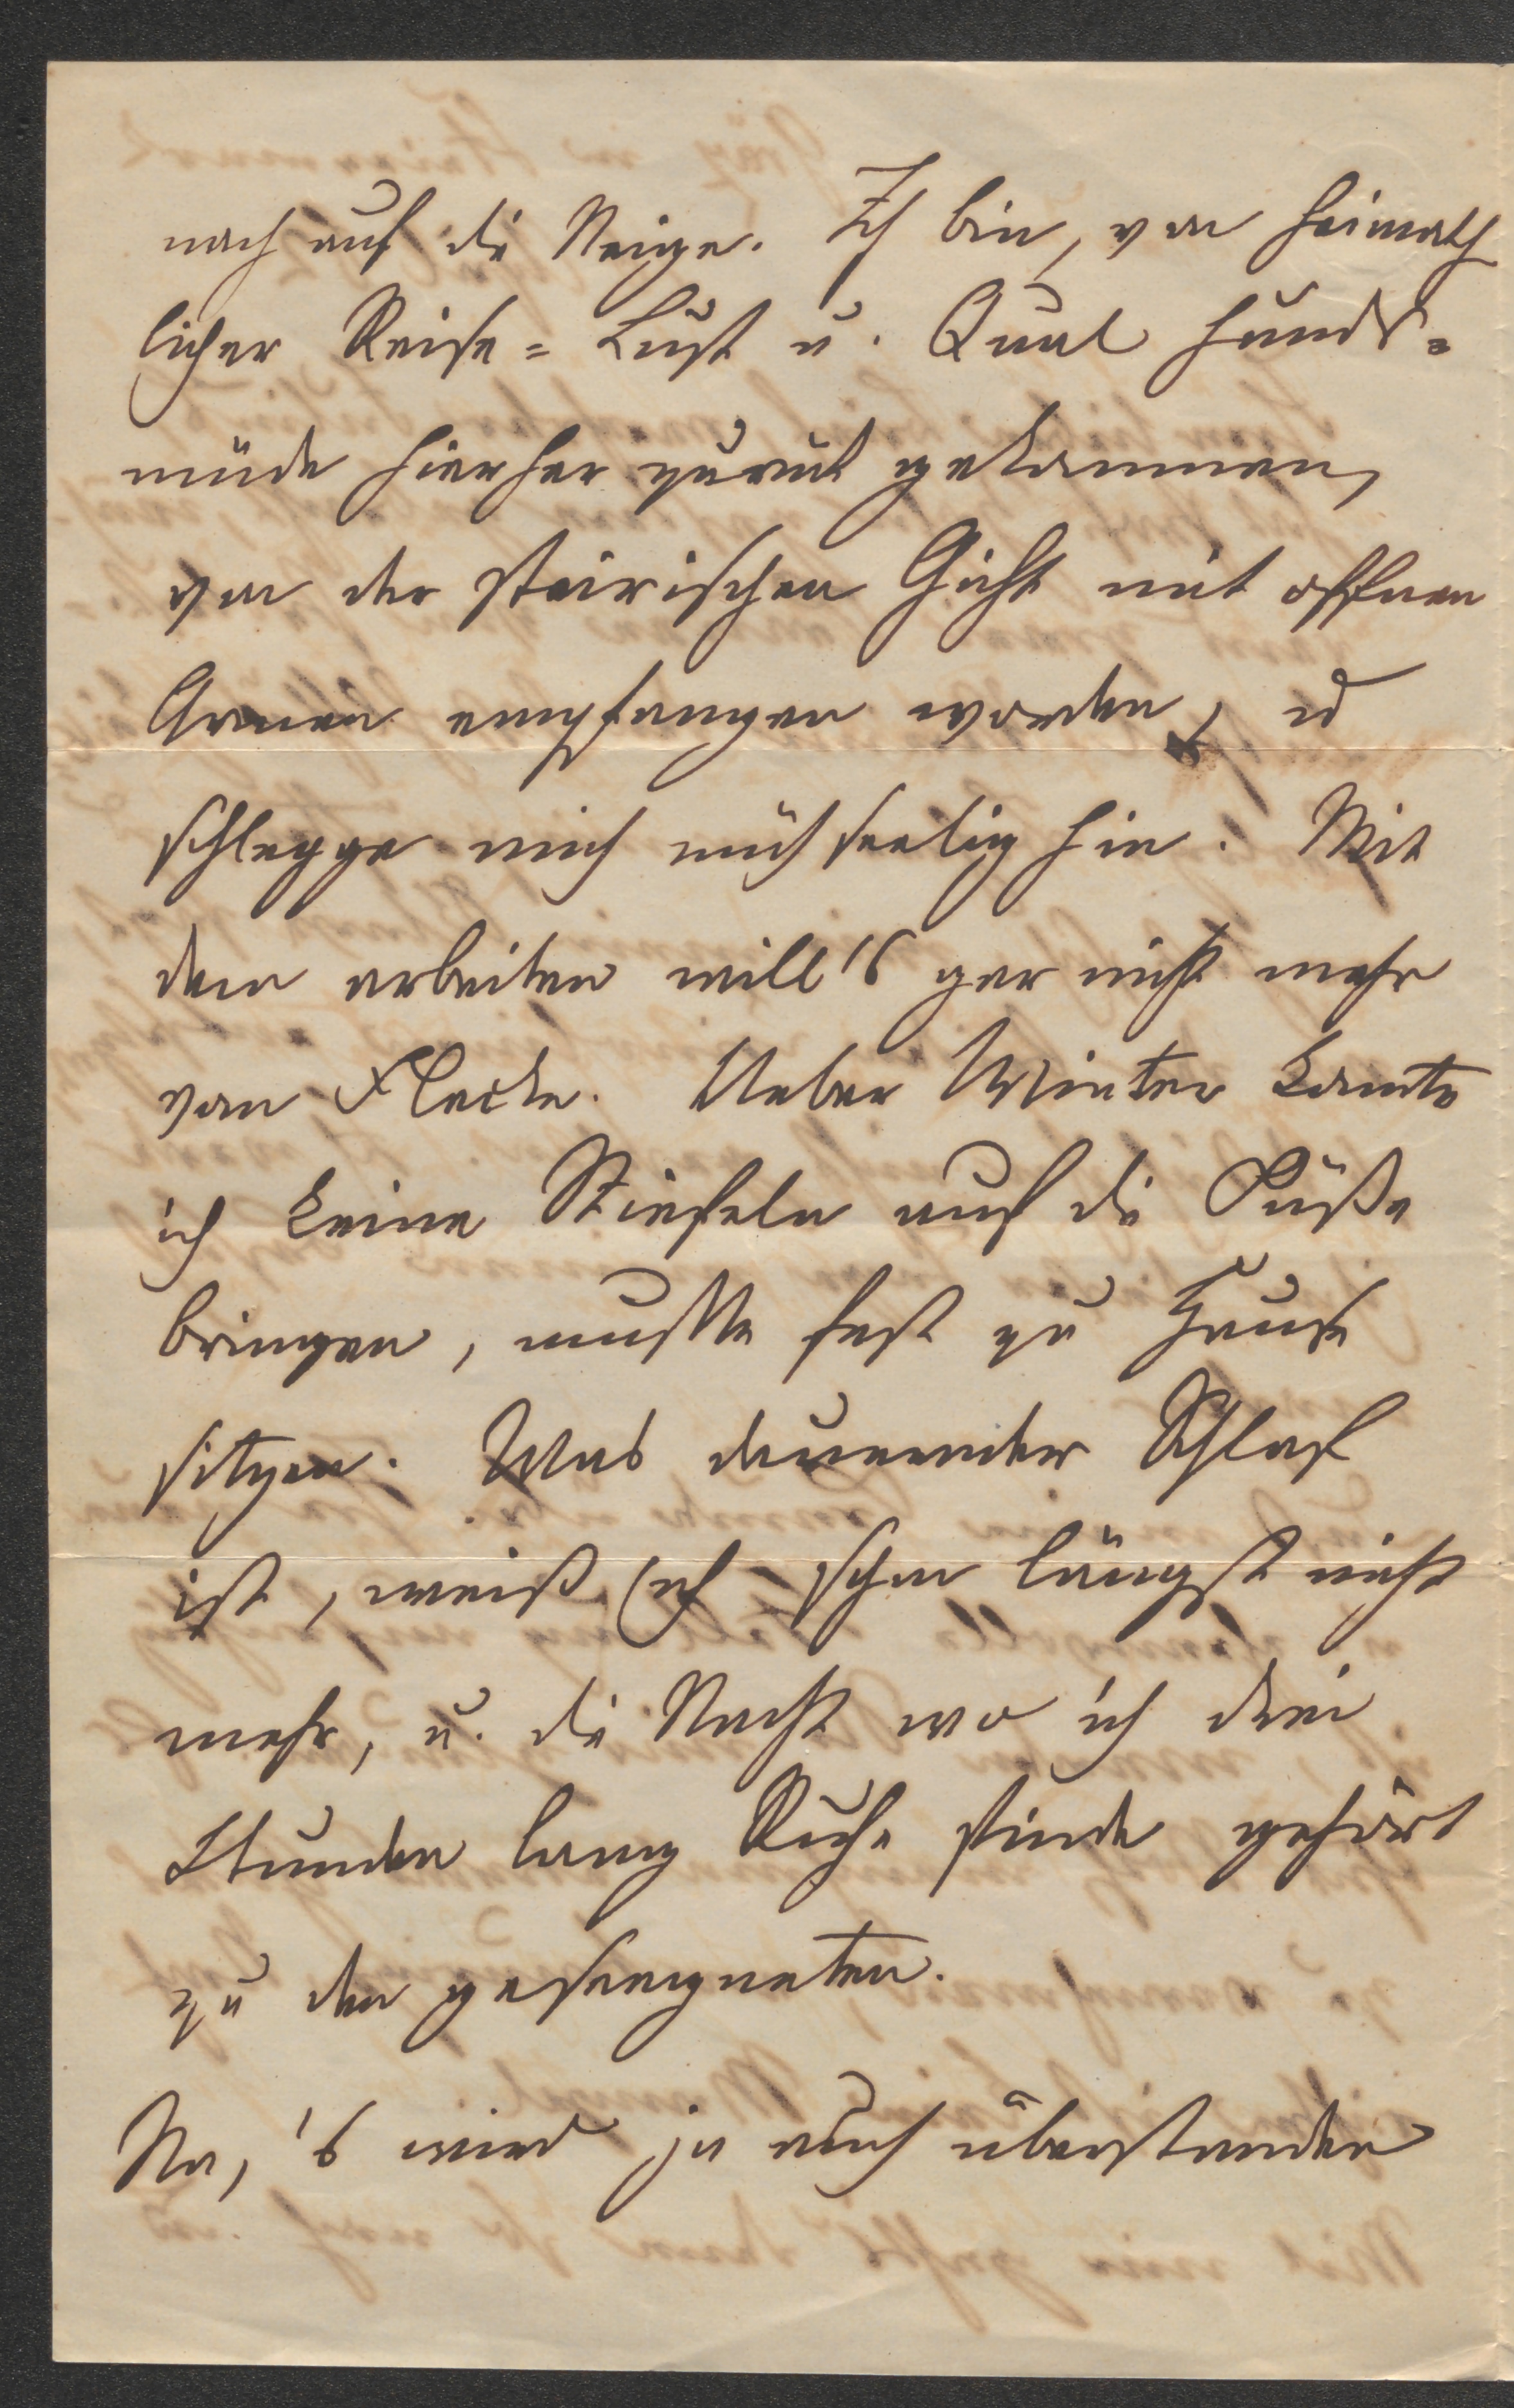 nach auf die Neige. Ich bin, von heimath
licher Reise = Lust u. Qual hunds=
müde hierher zurück gekommen,
von der steirischen Gicht mit offnen
Armen empfangen worden, u
schleppe mich mühseelig hin. Mit
dem arbeiten will's gar nicht mehr
vom Flecke. Ueber Winter konnte
ich keine Stiefeln auf die Füße
bringen, mußte fest zu Hause
sitzen. Was dauernder Schlaf
ist, weiß ich schon längst nicht
mehr, u. die Nacht wo ich drei
Stunden lang Ruhe finde gehört
zu den geseegneten.
Na, 's wird ja auch überstanden